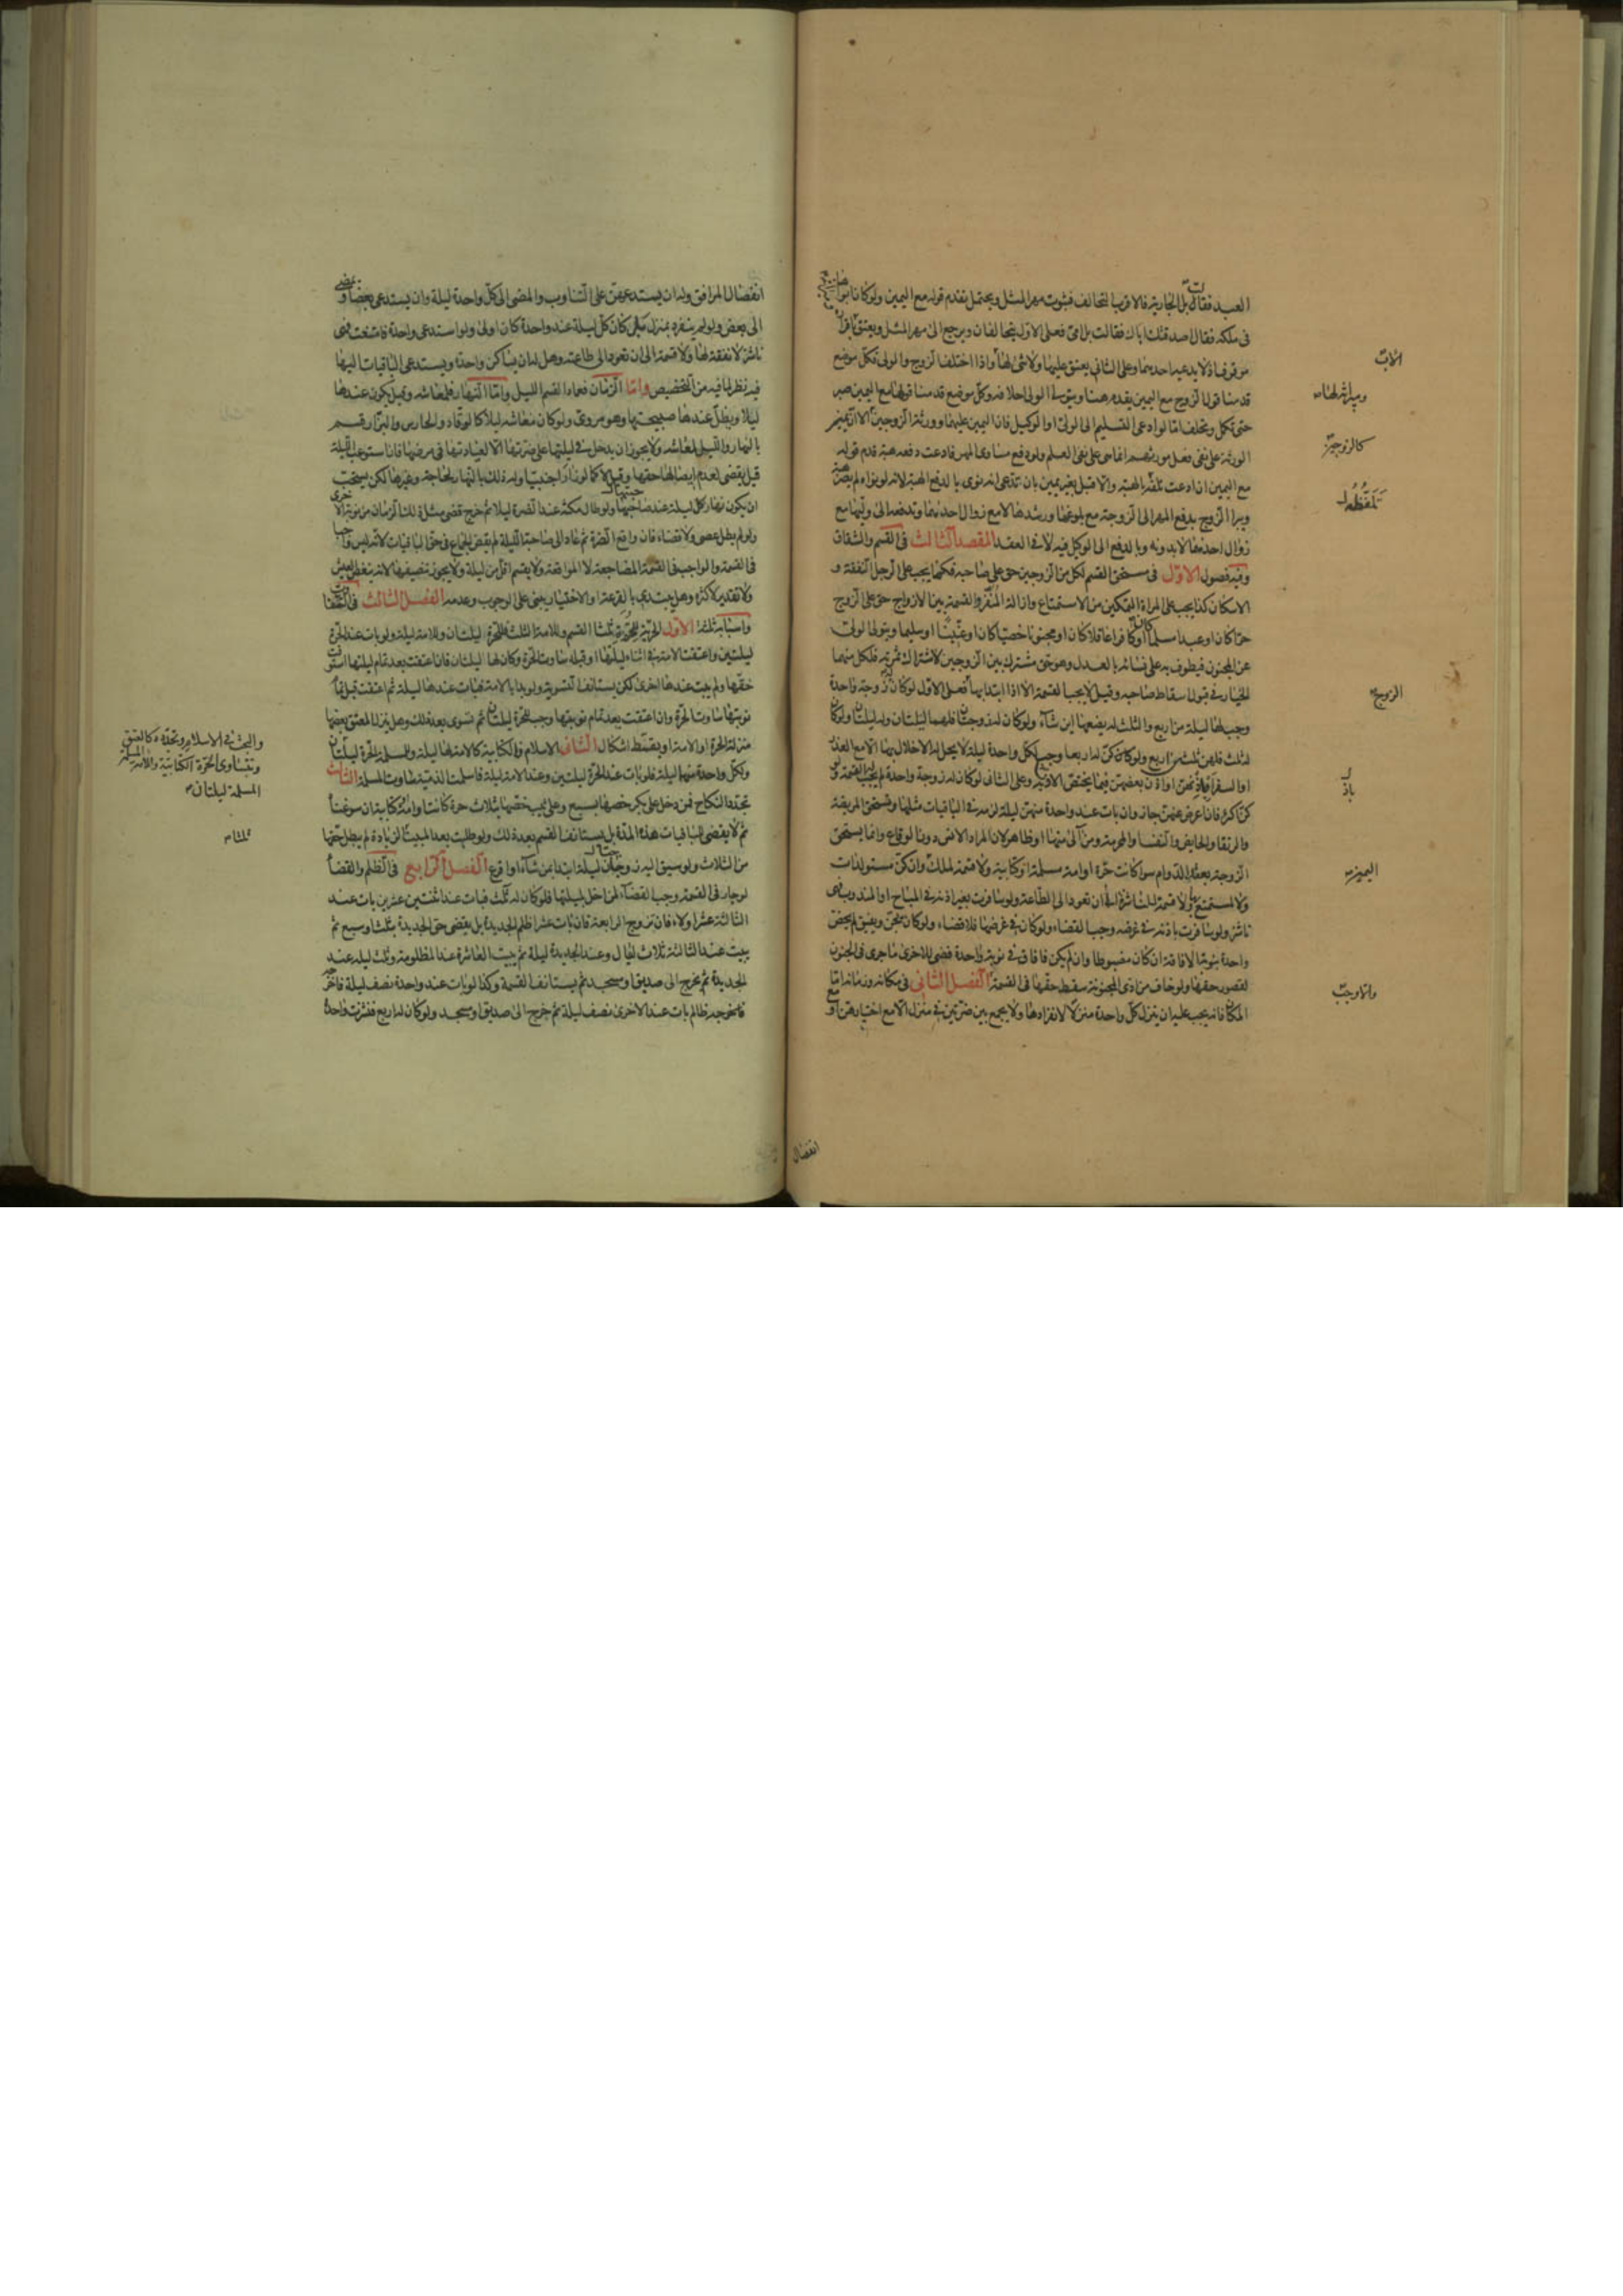 العبد فقالت بل الجارية فالاقرب التحالف فيثبت مهر المثل ويحتمل تقدم قوله مع اليمين ولو كانا ابواها
فى ملكه فقال اصدقتك اباك فقالت بل امى فعلى الاول يتحالفان ويرجع الى مهر المثل ويعتق الاب باقراره
موقوفا اذ لا يدعيه احدهما وعلى الثانى يعتق عليها ولا شئ لها واذا اختلف الزوج والولى فكل موضع
قدمنا قول الزوج مع اليمين يقدم هنا ويتولى الولى احلافه وكل موضع قدمنا قولها مع اليمين صبر
حتى تكمل وتحلف اما لو ادعى التسليم الى الولى او الوكيل فان اليمين عليهما وورثة الزوجين كالزوجين الا ان يمين
الورثة على نفى فعل مورثهم انما هى على نفى العلم ولو دفع مساوى المهر فادعت دفعه هبة قدم قوله
مع اليمين ان ادعت تلفظه بالهبة والا قبل بغير يمين بان تدعى انه نوى بالدفع الهبة لانه لو نواه لم يصر هبة
ويبرا الزوج بدفع المهر الى الزوجة مع بلوغها ورشدها لا مع زوال احدهما وتدفعه الى وليها مع
زوال احدهما لا بدونه وبالدفع الى الوكيل فيه لا فى العقد المقصد الثالث فى القسم والشقاق
وفيه فصول الاول فى مستحق القسم لكل من الزوجين حق على صاحبه فكما يجب على الرجل النفقة و
الاسكان كذا يجب على المراة التمكين من الاستمتاع وازالة المنفر والقسمة بين الازواج حق على الزوج
حرا كان او عبدا مسلما كان او كافرا عاقلا كان او مجنونا خصيا كان او عنينا او سليما ويتولى الولى
عن المجنون فيطوف به على نسائه بالعدل وهو حق مشترك بين الزوجين لاشتراك ثمرته فلكل منهما
الخيار فى قبول اسقاط صاحبه وقيل لا يجب القسمة الا اذا ابتدا بها فعلى الاول لو كان له زوجة واحدة
وجب لها ليلة من اربع والثلث له يضعها اين شاء ولو كان له زوجتان فلهما ليلتان وله ليلتان ولو كان
له ثلث فلهن ثلث من اربع ولو كان كن له اربعا وجب لكل واحدة ليلة لا يحل له الاخلال بها الا مع العذر
او السفر او اذنهن او اذن بعضهن فيما يختص الاذنة به وعلى الثانى لو كان له زوجة واحدة لم يجب لها القسمة ولو
كن اكثر فان اعرض عنهن جاز وان بات عند واحدة منهن ليلة لزمه فى الباقيات مثلها وتستحق المريضة
والرتقا والحايض والنفسا والمحرمة ومن آلى منها او ظاهر لان المراد الانس دون الوقاع وانما يستحق
الزوجة بعقد الدوام سوا كانت حرة او امة مسلمة او كتابية ولا قسمة لملك اليمين وان كن مستولدات
ولا المتمتع بها ولا قسمة للناشزة الى ان تعود الى الطاعة ولو سافرت بغير اذنه فى المباح او المندوب فهى
ناشز ولو سافرت باذنه فى غرضه وجب القضاء ولو كان فى غرضها فلا قضاء ولو كان يجن ويفيق لم يخص
واحدة بنوبة الافاقة ان كان مضبوطا وان لم يكن فافاق فى نوبة واحدة قضى للاخرى ما جرى فى الجنون
لقصور حقها ولو خاف من اذى المجنونة سقط حقها فى القسمة الفصل الثانى فى مكانه وزمانه اما
المكان فانه يجب عليه ان ينزل كل واحدة منزلا لانفرادها ولا يجمع بين ضرتين فى منزل الا مع اختيارهن او مع
الاب
كالزوجين
تلفظه
الزوج
باذ
اليمين
وانما وجب
انفصال
انفصال المرافق وله ان يستدعيهن على التناوب والمضى الى كل واحدة ليلة وان يستدعى بعضا ويمضى
الى بعض ولو لم ينفرد بمنزل بل كان كل ليلة عند واحدة كان اولى ولو استدعى واحدة فامتنعت فهى
ناشز لا نفقة لها ولا قسمة الى ان تعود الى طاعته وهل له ان يساكن واحدة ويستدعى الباقيات اليها
فيه نظر لما فيه من التخصيص واما الزمان فعماد القسم الليل واما النهار فلمعاشه وقيل يكون عندها
ليلا ويظل عندها صبيحتها وهو مروى ولو كان معاشه ليلا كالوقاد والحارس والبزار قسم
بالنهار والليل لمعاشه ولا يجوز ان يدخل فى ليلتها على ضرتها الا لعيادتها فى مرضها فان استوعب الليلة
قيل يقضى لعدم ايصالها حقها وقيل لا كما لو زار اجنبيا وله ذلك بالنهار لحاجة وغيرها لكن يستحب
ان يكون نهار كل ليلة عند صاحبتها ولو طال مكثه عند الضرة ليلا ثم خرج قضى مثل ذلك الزمان من نوبة الاخرى
ولو لم يطل عصى ولا قضاء فان واقع الضرة ثم عاد الى صاحبة الليلة لم يقض الجماع فى حق الباقيات لانه ليس واجبا
فى القسمة والواجب فى القسمة المضاجعة لا المواقعة ولا يقسم اقل من ليلة ولا يجوز تنصيفها لانه ينغص العيش
ولا تقدير لاكثره وهل يبتدى بالقرعة او الاختيار يبنى على الوجوب وعدمه الفصل الثالث فى التفاوت
واسبابه ثلثة الاول الحرية فللحرة ثلثا القسم وللامة الثلث للحرة ليلتان وللامة ليلة ولو بات عند الحرة
ليلتين واعتقت الامة فى اثناء ليلتها او قبله ساوت الحرة وكان لها ليلتان فان اعتقت بعد تمام ليلتها استوفت
حقها ولم يبت عندها اخرى لكن يستانف التسوية ولو بدا بالامة فبات عندها ليلة ثم اعتقت قبل تمام
نوبتها ساوت الحرة وان اعتقت بعد تمام نوبتها وجب للحرة ليلتان ثم تسوى بعد ذلك وهل ينزل المعتق بعضها
منزلة الحرة او الامة او يقسط اشكال الثانى الاسلام فالكتابية كالامة لها ليلة وللمسلمة الحرة ليلتان
ولكل واحدة منهما ليلة فلو بات عند الحرة ليلتين وعند الامة ليلة فاسلمت الذمية ساوت المسلمة الثالث
تجدد النكاح فمن دخل على بكر خصها بسبع وعلى ثيب خصها بثلاث حرة كانتا او امة او كتابية
ثم لا يقضى للباقيات هذه المدة بل يستانف القسم بعد ذلك ولو طلبت بعد المبيت الزيادة لم يبطل حقها
من الثلاث ولو سيق اليه زوجتان ليلة ابتدا بمن شاء او اقرع الفصل الرابع فى الظلم والقضا
لو جار فى القسمة وجب القضاء لمن اخل بليلتها فلو كان له ثلث فبات عند اثنتين عشرين بات عند
الثالثة عشرا ولاء فان تزوج الرابعة فان بات عشرا ظلم الجديدة بل يقضى حق الجديدة بثلث او سبع ثم
يبيت عند الثالثة ثلاث ليال وعند الجديدة ليلة ثم يبيت العاشرة عند المظلومة وثلث ليلة عند
الجديدة ثم يخرج الى صديق او مسجد ثم يستانف القسمة وكذا لو بات عند واحدة نصف ليلة فاخر
فاخرجه ظالم بات عند الاخرى نصف ليلة ثم خرج الى صديق او مسجد ولو كان له اربع فنشزت واحدة
والبحث فى الاسلام وتجدده كالعتق
وتتساوى الحرة الكتابية والامة المسلمة
المسلمة ليلتان